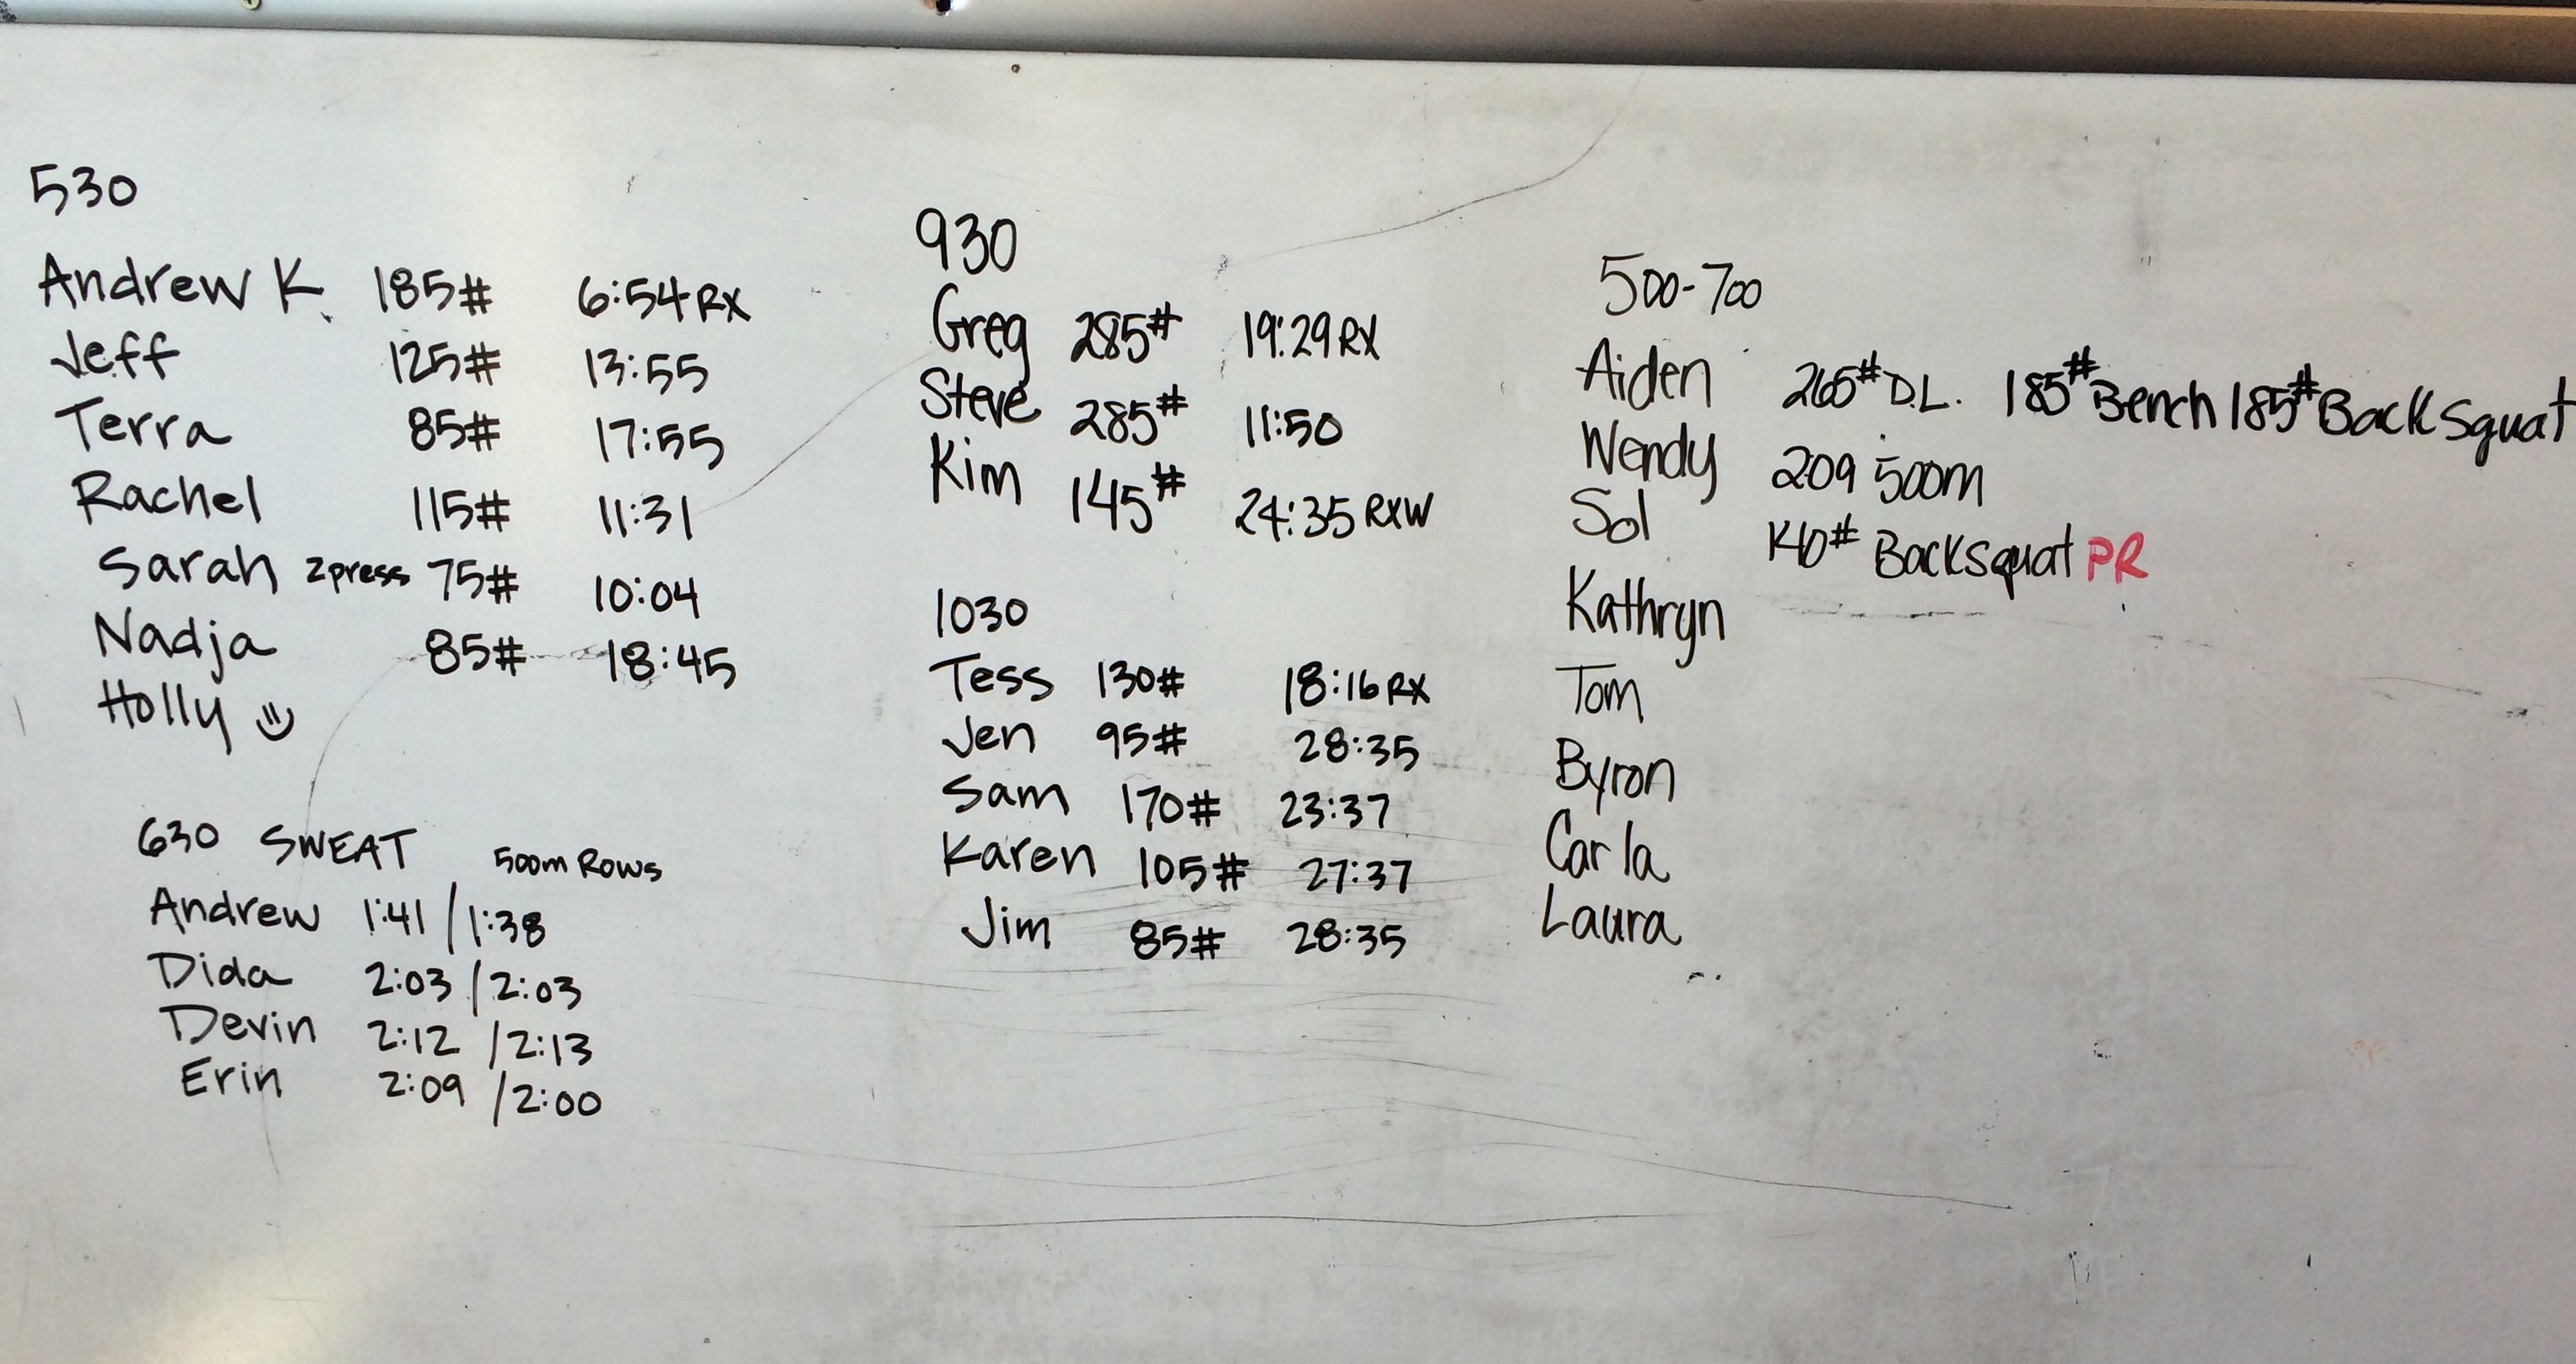 530
Andrew K. 185# 6:54 RX
Jeff 125# 13:55
Terra 85# 17:55
Rachel 115# 11:31
Sarah zpress 75# 10:04
Nadja 85# 18:45
Holly
630 SWEAT 500m Rows
Andrew 1:41 / 1:38
Dida 2:03 / 2:03
Devin 2:12 / 2:13
Erin 2:09 / 2:00
930
Greg 285# 19:29 RX
Steve 285# 11:50
Kim 145# 24:35 RXW
1030
Tess 130# 18:16 RX
Jen 95# 28:35
Sam 170# 23:37
Karen 105# 27:37
Jim 85# 28:35
500-700
Aiden 265# D.L. 185# Bench 185# Back Squat
Wendy 209 500m
Sol 140# Backsquat PR
Kathryn
Tom
Byron
Carla
Laura